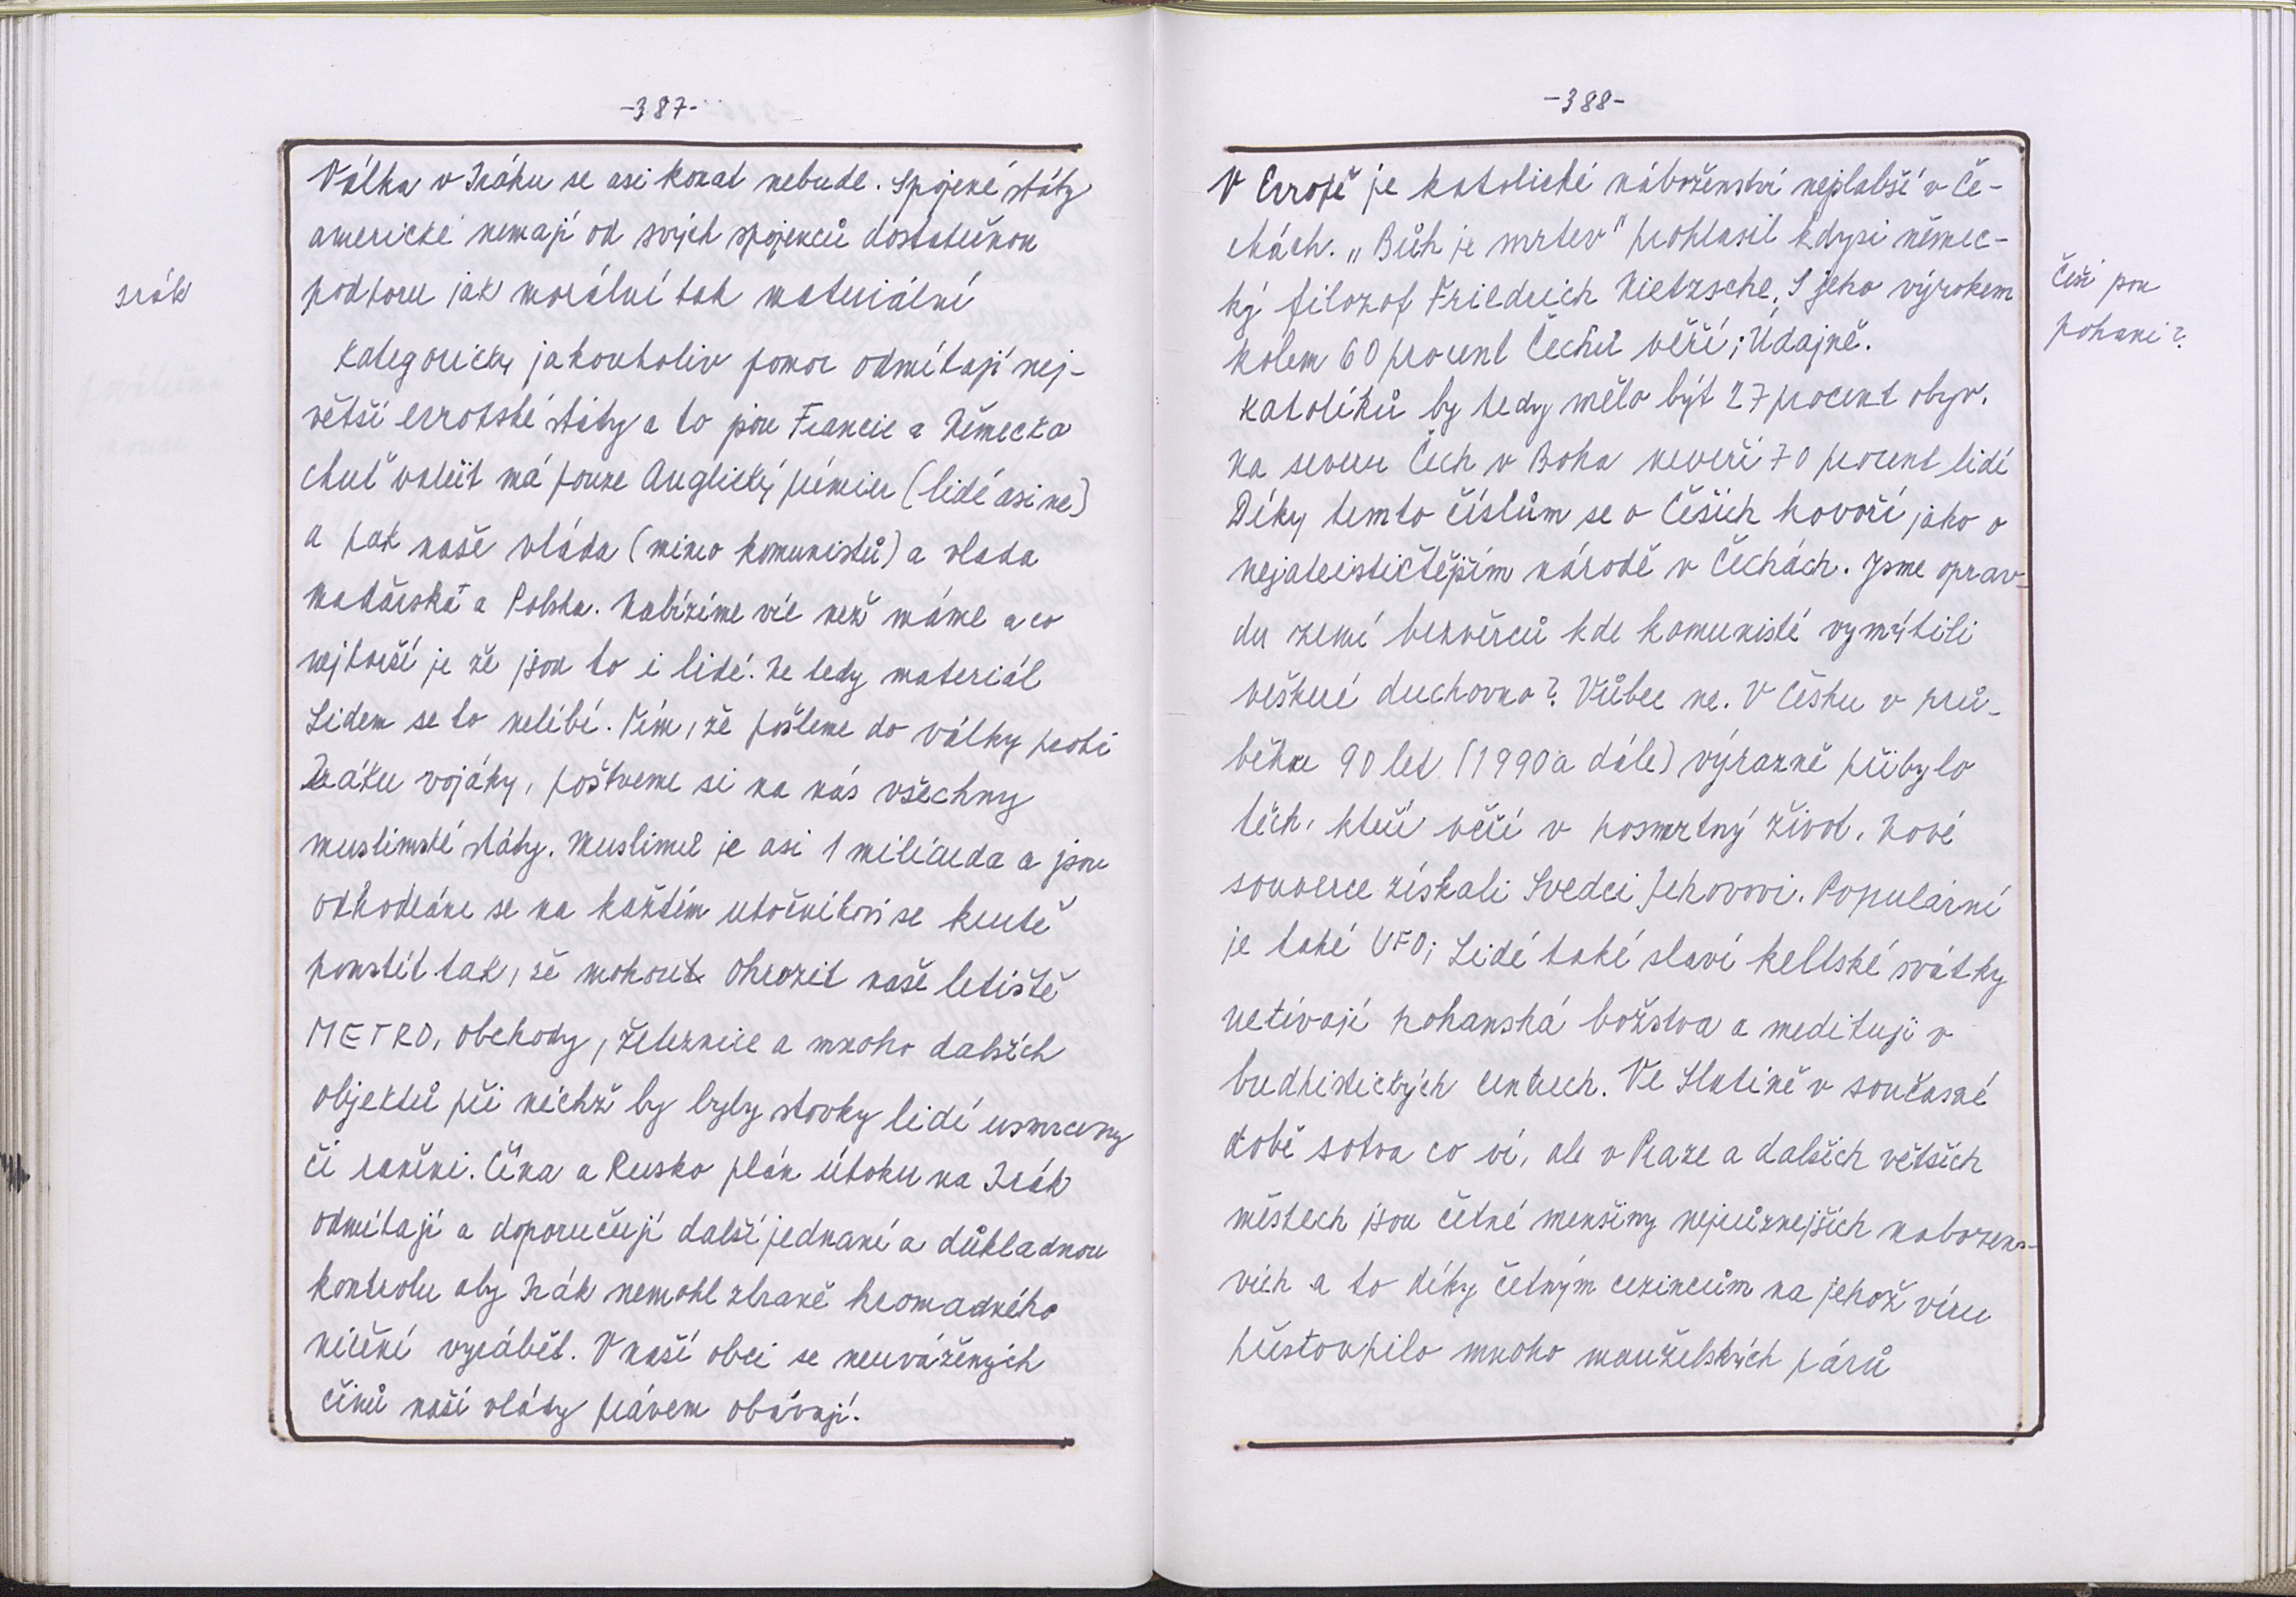 -387-
Válka v Iráku se asi konat nebude. Spojené státy
americké nemají od svých spojenců dostatečnou
podporu jak morální tak materiální
Irák
Kategoricky jakoukoliv pomoc odmítají nej-
větší evropské státy a to jsou Francie a Německo
chuť válčit má pouze Anglický premier (lidé asi ne)
a pak naše vláda (mimo komunistů) a vlada
Maďarská a Polska. Nabízíme víc než máme a co
nejhorší je že jsou to i lidé. Ne tedy materiál
Lidem se to nelíbí. Tím, že pošleme do války proti
Iráku vojáky, poštveme si na nás všechny
muslimské státy. Muslimů je asi 1 miliarda a jsou
odhodláni se na každém utočníkovi se krutě
pomstít tak, že mohout ohrozit naše letiště
METRO, obchody, železnice a mnoho dalších
objektů při nichž by byly stovky lidí usmrceny
či raněni. Čína a Rusko plán útoku na Irák
odmítají a doporučují další jednaní a důkladnou
kontrolu aby Irák nemohl zbraně hromadného
ničení vyrábět. V naší obci se neuvážených
činů naší vlády právem obávají.
-388-
V Evropě je katolické náboženství nejslabší v Če-
chách. „Bůh je mrtev" prohlasil kdysi němec-
ký filozof Friedrich Nietzsche. S jeho výrokem
Češi jsou
pohani?
kolem 60 procent Čechů věří; Údajně.
katolíků by tedy mělo být 27 procent obyv.
na severu Čech v Boha neveří 70 procent lidí
Díky temto číslům se o Češích hovoří jako o
nejateističtějším národě v Čechách. Jsme oprav-
du zemí bezvěrců kde komunisté vymýtili
veškeré duchovno? Vůbec ne. V Česku v prů-
běhu 90 let (1990 a dále) výrazně přibylo
těch, kteří věří v posmrtný život. Nové
souverce získali Svedci Jehovovi. Populární
je také UFO; Lidé také slaví keltské svátky
uctívají pohanská božstva a meditují v
budhistických centrech. Ve Slatině v současné
době sotva co ví, ale v Praze a dalších větších
městech jsou četné menšiny nejrůznejších nabozens-
vích a to díky četným cizincům na jehož víru
přestoupilo mnoho manželských párů